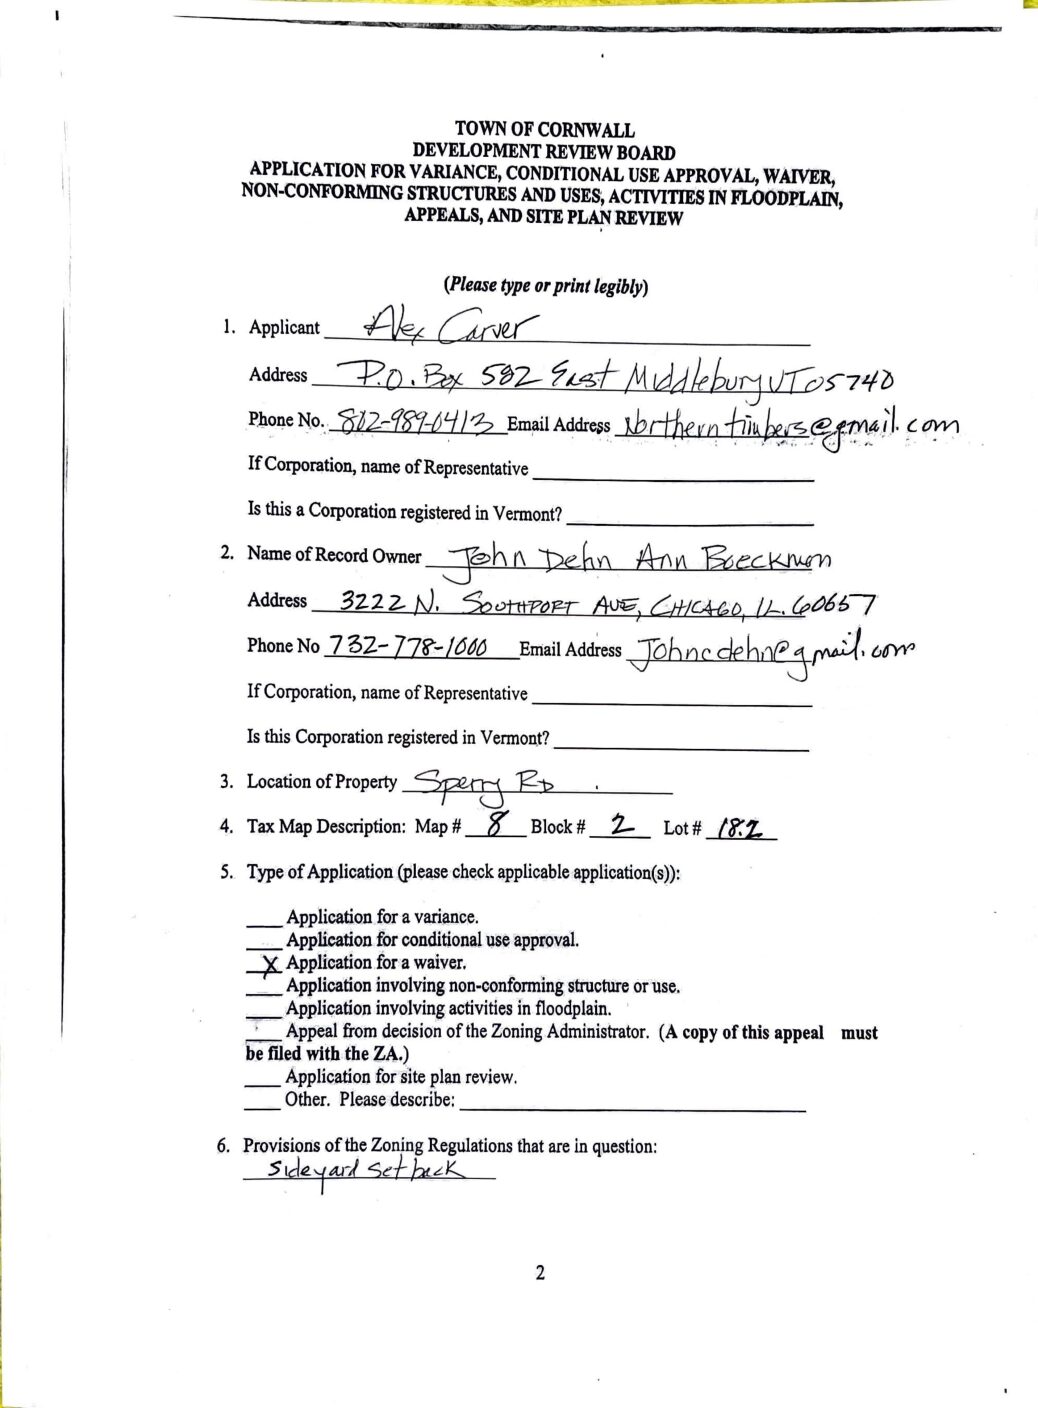 TOWN OF CORNWALL
DEVELOPMENT REVIEW BOARD
APPLICATION FOR VARIANCE, CONDITIONAL USE APPROVAL, WAIVER,
NON-CONFORMING STRUCTURES AND USES, ACTIVITIES IN FLOODPLAIN,
APPEALS, AND SITE PLAN REVIEW
(Please type or print legibly)
1. Applicant Alex Carver
Address P.O. Box 582 East Middlebury VT 05740
Phone No. 802-989-0413 Email Address Northerntimbers@gmail.com
If Corporation, name of Representative
Is this a Corporation registered in Vermont?
2. Name of Record Owner John Dehn Ann Boeckman
Address 3222 N. SOUTHPORT AVE, CHICAGO, IL. 60657
Phone No 732-778-1000 Email Address Johncdehn@gmail.com
If Corporation, name of Representative
Is this Corporation registered in Vermont?
3. Location of Property Sperry RD
4. Tax Map Description: Map # 8 Block # 2 Lot # 18.2
5. Type of Application (please check applicable application(s)):
Application for a variance.
Application for conditional use approval.
X Application for a waiver.
Application involving non-conforming structure or use.
Application involving activities in floodplain.
Appeal from decision of the Zoning Administrator. (A copy of this appeal must
be filed with the ZA.)
Application for site plan review.
Other. Please describe:
6. Provisions of the Zoning Regulations that are in question:
Sideyard Setback
2